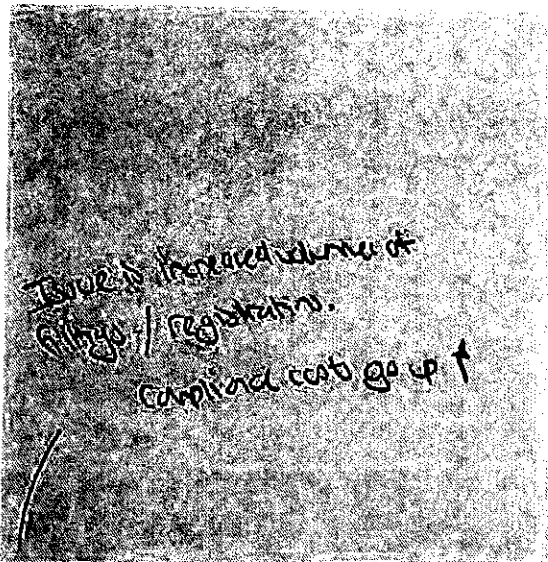 Issue is increased volumes of
filings / registrations.
Compliance costs go up ↑